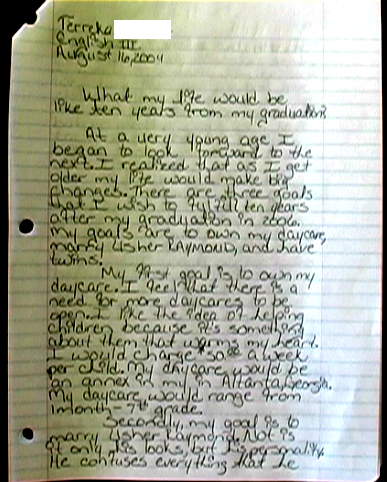 Terreka
English III
August 16, 2004
What my life would be
like ten years from my graduation?
At a very young age I
began to look forward to the
next. I realized that as I get
older my life would make big
changes. There are three goals
that I wish to fulfill ten years
after my graduation in 2006.
My goals are to own my daycare,
marry Usher RAYMOND, and have
twins.
My first goal is to own my
daycare. I feel that there is a
need for more daycares to be
open. I like the idea of helping
children because it's something
about them that warms my heart.
I would charge $50.00 a week
per child. My daycare would be
an annex in my in Atlanta, Georgia.
My daycare would range from
1month - 7th grade.
Secondly, my goal is to
marry Usher Raymond. Not is
it only his looks, but it's personality.
He contuses everything that he